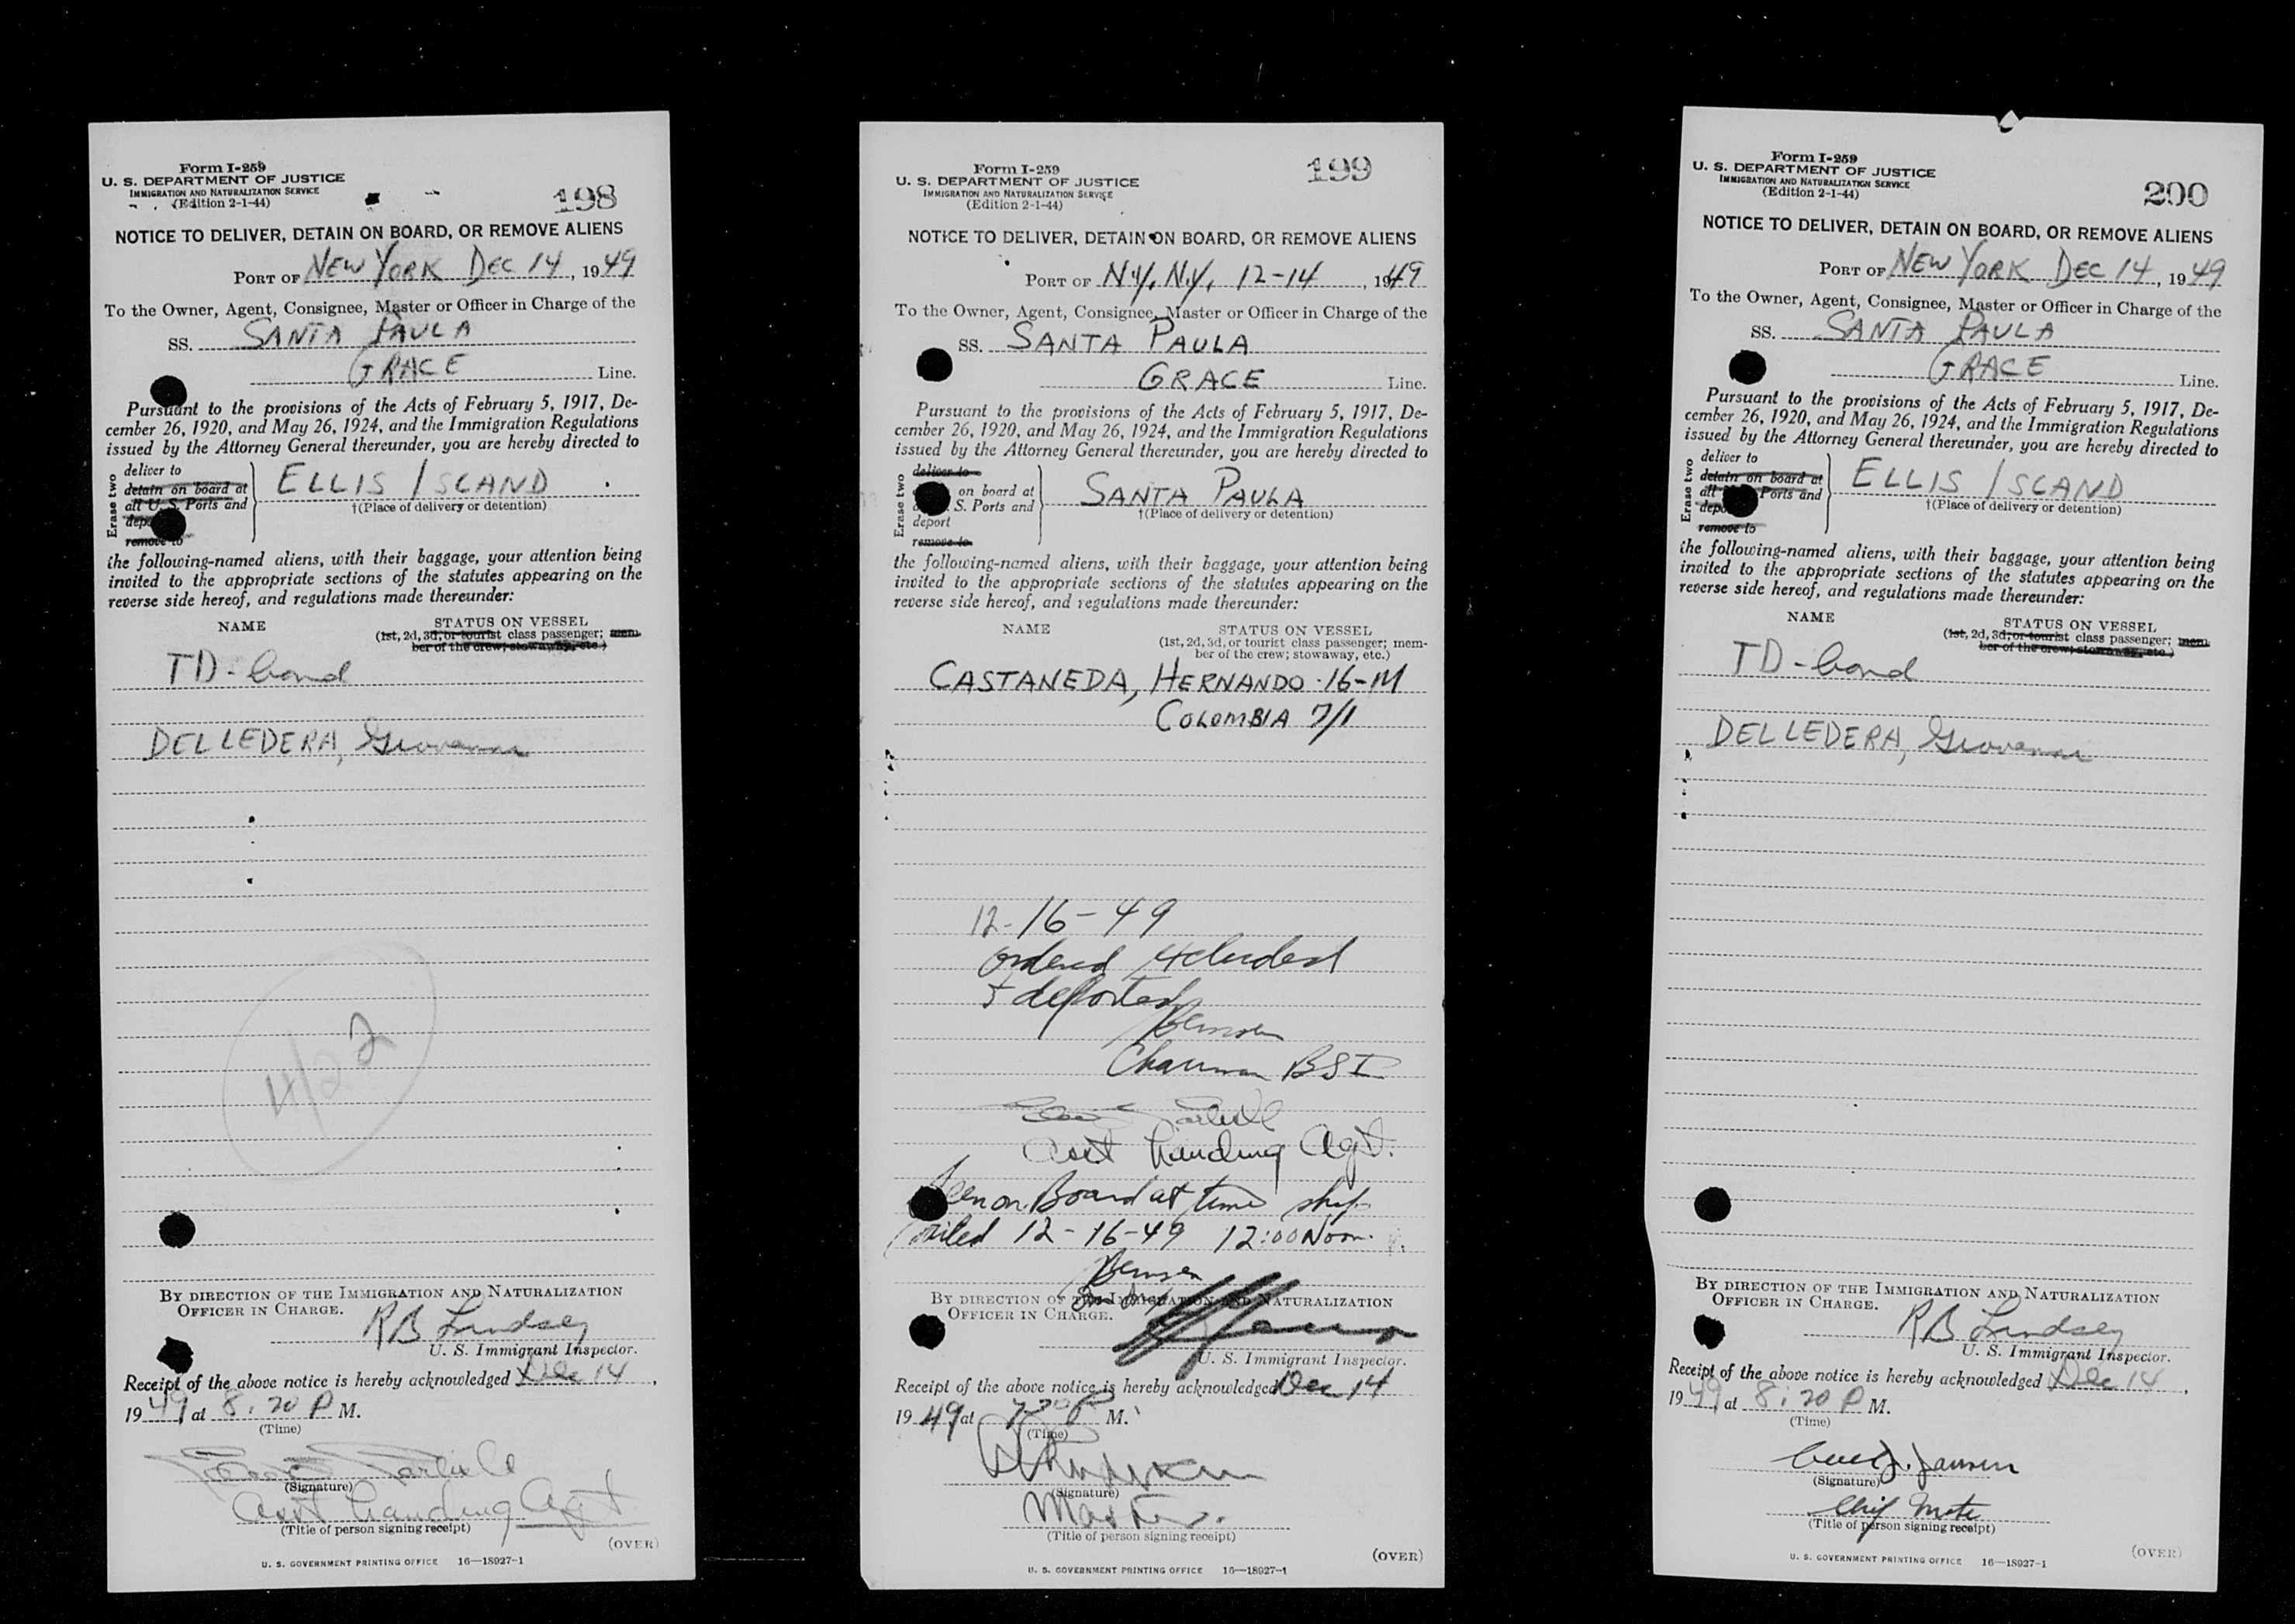 Form I-259
U. S. DEPARTMENT OF JUSTICE
IMMIGRATION AND NATURALIZATION SERVICE
(Edition 2-1-44)
198
NOTICE TO DELIVER, DETAIN ON BOARD, OR REMOVE ALIENS
PORT OF NEW YORK DEC 14, 1949
To the Owner, Agent, Consignee, Master or Officer in Charge of the
SS. SANTA PAULA
GRACE Line.
Pursuant to the provisions of the Acts of February 5, 1917, De-
cember 26, 1920, and May 26, 1924, and the Immigration Regulations
issued by the Attorney General thereunder, you are hereby directed to
Erase two
deliver to
detain on board at
all U. S. Ports and
remove to
ELLIS ISLAND
†(Place of delivery or detention)
the following-named aliens, with their baggage, your attention being
invited to the appropriate sections of the statutes appearing on the
reverse side hereof, and regulations made thereunder:
NAME
STATUS ON VESSEL
(1st, 2d, 3d, or tourist class passenger; mem-
ber of the crew; stowaway, etc.)
TD - bond
DELLEDERA, Giovanni
4/22
BY DIRECTION OF THE IMMIGRATION AND NATURALIZATION
OFFICER IN CHARGE.
RB Lindsey
U. S. Immigrant Inspector.
Receipt of the above notice is hereby acknowledged Dec 14,
1949 at 8:20 P M.
(Time)
(Signature)
Asst Landing Agt
(Title of person signing receipt)
(OVER)
U. S. GOVERNMENT PRINTING OFFICE 16—18927-1
Form I-259
U. S. DEPARTMENT OF JUSTICE
IMMIGRATION AND NATURALIZATION SERVICE
(Edition 2-1-44)
199
NOTICE TO DELIVER, DETAIN ON BOARD, OR REMOVE ALIENS
PORT OF N.Y., N.Y., 12-14, 1949
To the Owner, Agent, Consignee, Master or Officer in Charge of the
SS. SANTA PAULA
GRACE Line.
Pursuant to the provisions of the Acts of February 5, 1917, De-
cember 26, 1920, and May 26, 1924, and the Immigration Regulations
issued by the Attorney General thereunder, you are hereby directed to
Erase two
deliver to
on board at
S. Ports and
deport
remove to
SANTA PAULA
†(Place of delivery or detention)
the following-named aliens, with their baggage, your attention being
invited to the appropriate sections of the statutes appearing on the
reverse side hereof, and regulations made thereunder:
NAME
STATUS ON VESSEL
(1st, 2d, 3d, or tourist class passenger; mem-
ber of the crew; stowaway, etc.)
CASTANEDA, HERNANDO - 16-M
COLOMBIA 7/1
12-16-49
ordered excluded
+ deported
Chairman BSI
Asst Landing Agt.
Seen on Board at time ship
sailed 12-16-49 12:00 Noon.
BY DIRECTION OF THE IMMIGRATION AND NATURALIZATION
OFFICER IN CHARGE.
U. S. Immigrant Inspector.
Receipt of the above notice is hereby acknowledged Dec 14
1949 at P M.
(Time)
(Signature)
Master.
(Title of person signing receipt)
(OVER)
U. S. GOVERNMENT PRINTING OFFICE 16—18927-1
Form I-259
U. S. DEPARTMENT OF JUSTICE
IMMIGRATION AND NATURALIZATION SERVICE
(Edition 2-1-44)
200
NOTICE TO DELIVER, DETAIN ON BOARD, OR REMOVE ALIENS
PORT OF NEW YORK DEC 14, 1949
To the Owner, Agent, Consignee, Master or Officer in Charge of the
SS. SANTA PAULA
GRACE Line.
Pursuant to the provisions of the Acts of February 5, 1917, De-
cember 26, 1920, and May 26, 1924, and the Immigration Regulations
issued by the Attorney General thereunder, you are hereby directed to
Erase two
deliver to
detain on board at
all Ports and
remove to
ELLIS ISLAND
†(Place of delivery or detention)
the following-named aliens, with their baggage, your attention being
invited to the appropriate sections of the statutes appearing on the
reverse side hereof, and regulations made thereunder:
NAME
STATUS ON VESSEL
(1st, 2d, 3d, or tourist class passenger; mem-
ber of the crew; stowaway, etc.)
TD - bond
DELLEDERA, Giovanni
BY DIRECTION OF THE IMMIGRATION AND NATURALIZATION
OFFICER IN CHARGE.
RB Lindsey
U. S. Immigrant Inspector.
Receipt of the above notice is hereby acknowledged Dec 14,
1949 at 8:20 P M.
(Time)
(Signature)
Chief Mate
(Title of person signing receipt)
(OVER)
U. S. GOVERNMENT PRINTING OFFICE 16—18927-1